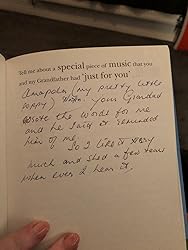 Tell me about a special piece of music that you
and my Grandfather had 'just for you'
Amapola (my pretty little
poppy) your Grandad
wrote the words for me
and he said it reminded
him of me.
So I like it very
much and shed a few tears
when ever I hear it,